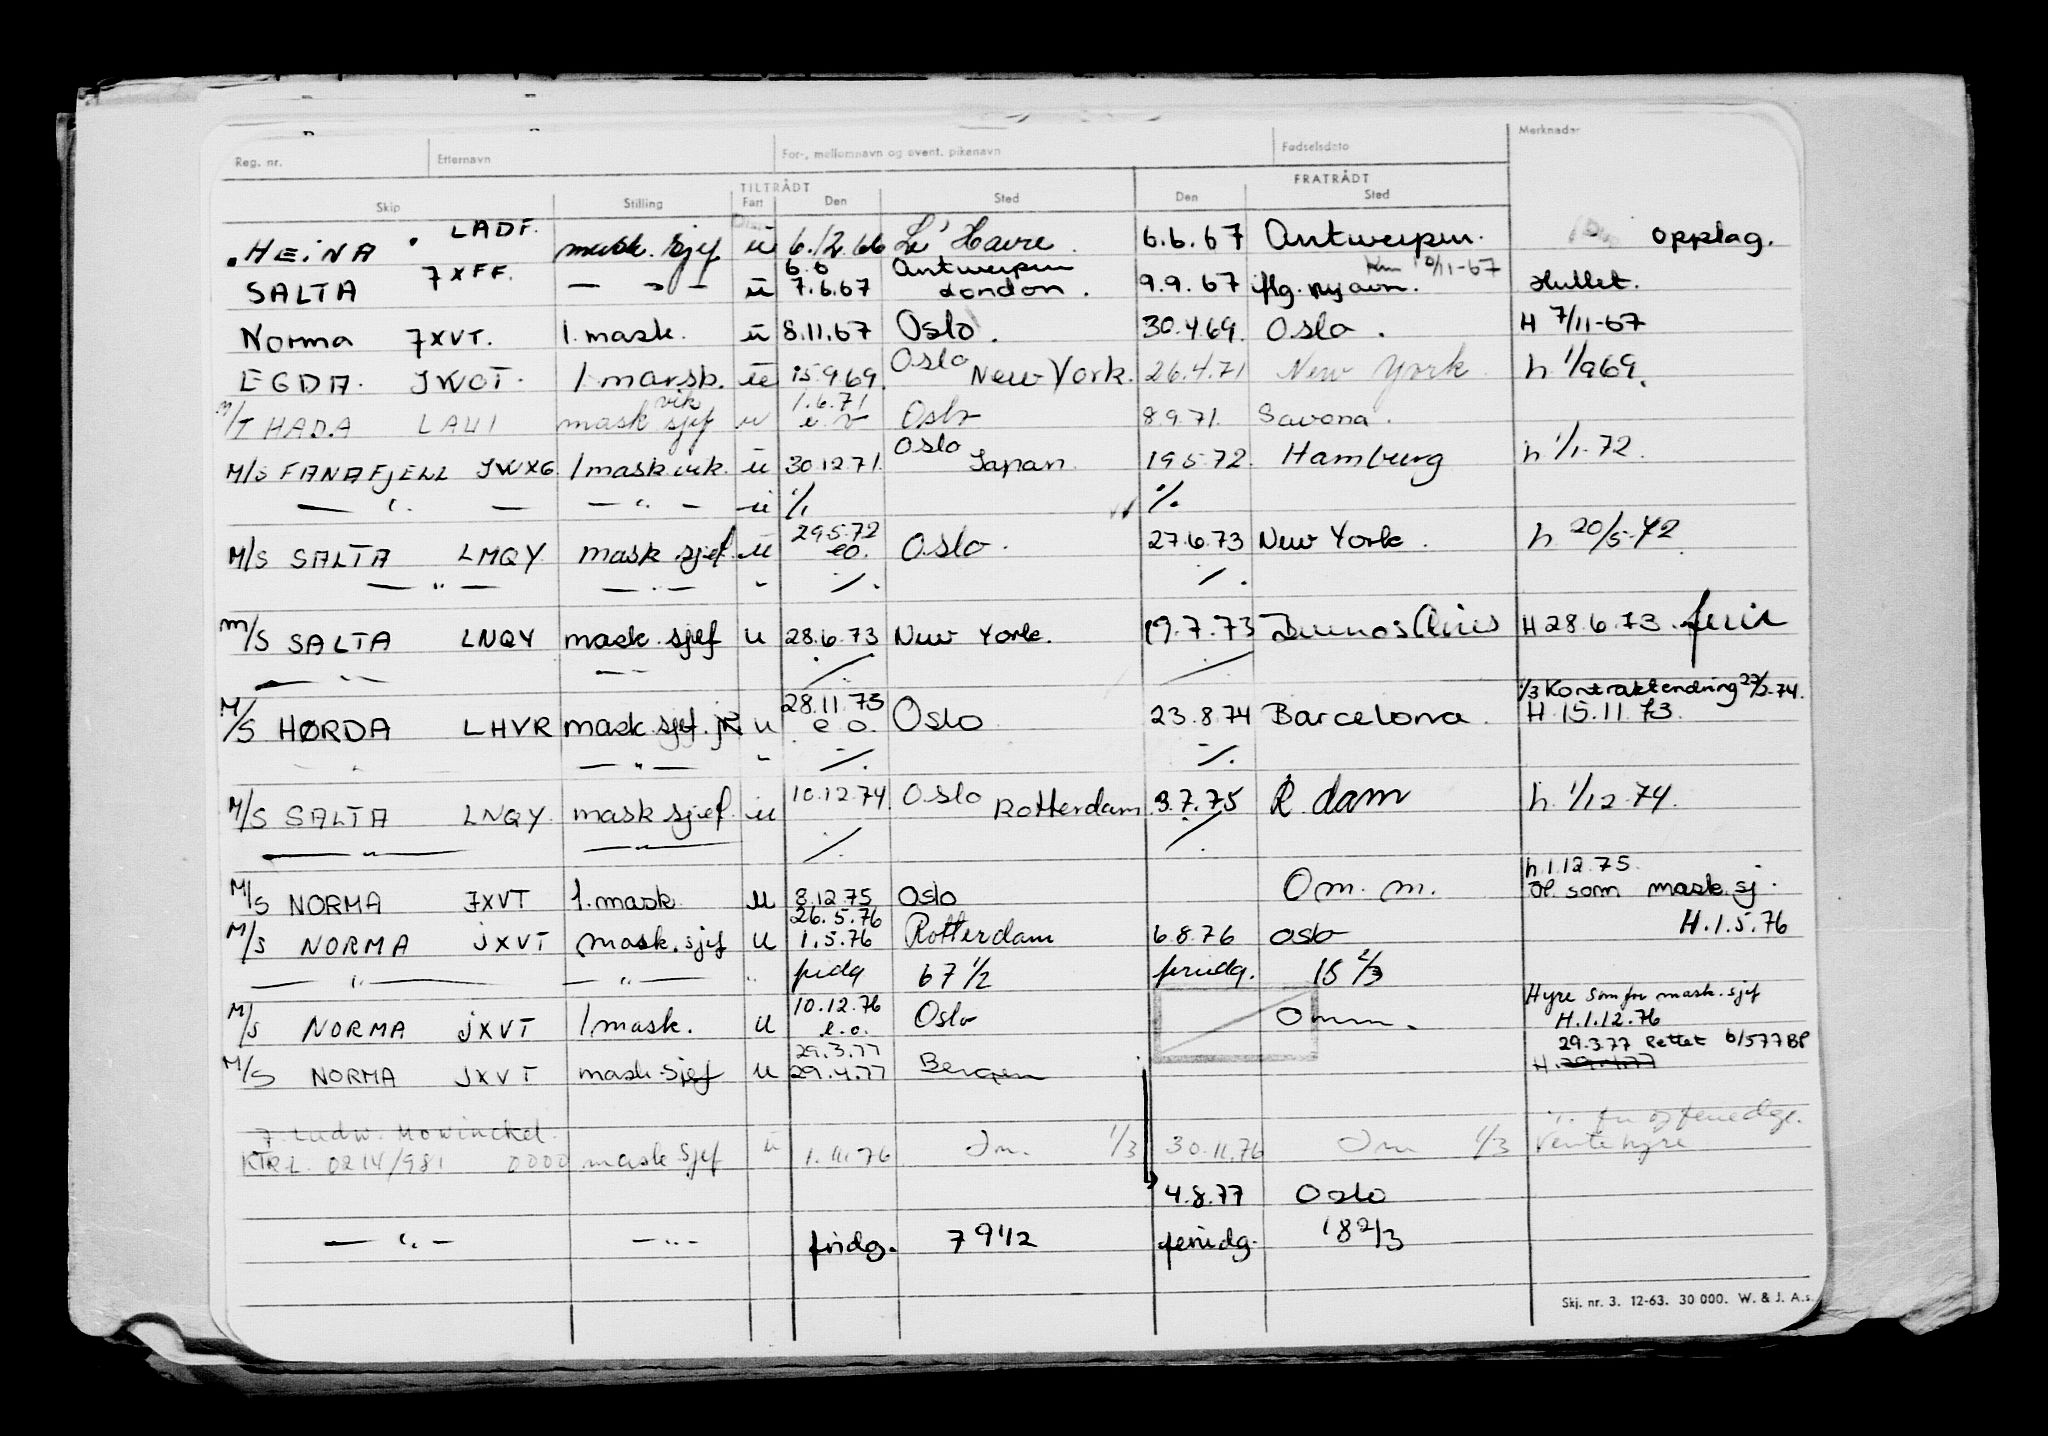 Reg. nr. Etternavn For-, mellomnavn og event. pikenavn Fødselsdato Merknader
TILTRÅDT FRATRÅDT
Skip Stilling Fart Den Sted Den Sted
HEINA LADF. mask. sjef u 6.12.66 Le' Havre. 6.6.67 Antwerpen. Opplag.
6.6 Antwerpen
SALTA 7XFF. — " — u 7.6.67 London. 9.9.67 flg. nyavn. 10/11-67 Hullet.
Norma JXVT. 1. mask. u 8.11.67 Oslo. 30.4.69. Oslo. H 7/11-67
EGDA. JWOT. 1 mask. u 15.9.69. Oslo New York. 26.4.71 New York. h 1/969.
vik 1.6.71
M/T HADA LAUI mask sjef u e.o Oslo 8.9.71. Savona.
M/S FANAFJELL JWXG 1 mask vik. u 30.12.71. Oslo Japan. 19.5.72. Hamburg h 1/1-72.
— " — — " — u ./. ./.
29.5.72
M/S SALTA LMQY mask sjef. u e.o. Oslo. 27.6.73 New York. h 20/5-72.
— " — — " — " ./. ./.
M/S SALTA LNQY mask. sjef u 28.6.73 New York. 19.7.73 Buenos Aires H 28.6.73. ferie
— " — — " — ./. ./.
28.11.73 1/3 Kontraktendring 27/2-74.
M/S HØRDA LHVR mask. sjef. jR u e.o. Oslo 23.8.74 Barcelona. H. 15.11.73.
" — " — " ./. ./.
M/S SALTA LNQY. mask sjef. u 10.12.74. Oslo Rotterdam. 3.7.75 R.dam h. 1/12-74.
— " — — " — ./. ./.
h.1.12.75.
M/S NORMA JXVT 1. mask. u 8.12.75 Oslo Om. m. som mask. sj.
26.5.76 H.1.5.76
M/S NORMA JXVT mask. sjef u 1.5.76 Rotterdam 6.8.76 Oslo
— " — — " — " fridg 67 1/2 feriedg. 15 2/3
10.12.76 Hyre som for mask. sjef
M/S NORMA JXVT 1 mask. u e.o. Oslo Omm. H.1.12.76
29.3.77 29.3.77 Rettet 6/5 77 BP
M/S NORMA JXVT mask. sjef u 29.4.77 Bergen H. 29.4.77
J. Ludw. Mowinckel. ./. fri og feriedge.
KTRL. 0214/981 0000 mask sjef u 1.11.76 Om. 1/3 30.11.76 Om 1/3 Ventehyre
4.8.77 Oslo
— " — — " — fridg. 79 1/2 feriedg. 18 2/3
Skj. nr. 3. 12-63. 30 000. W. & J. A.s.